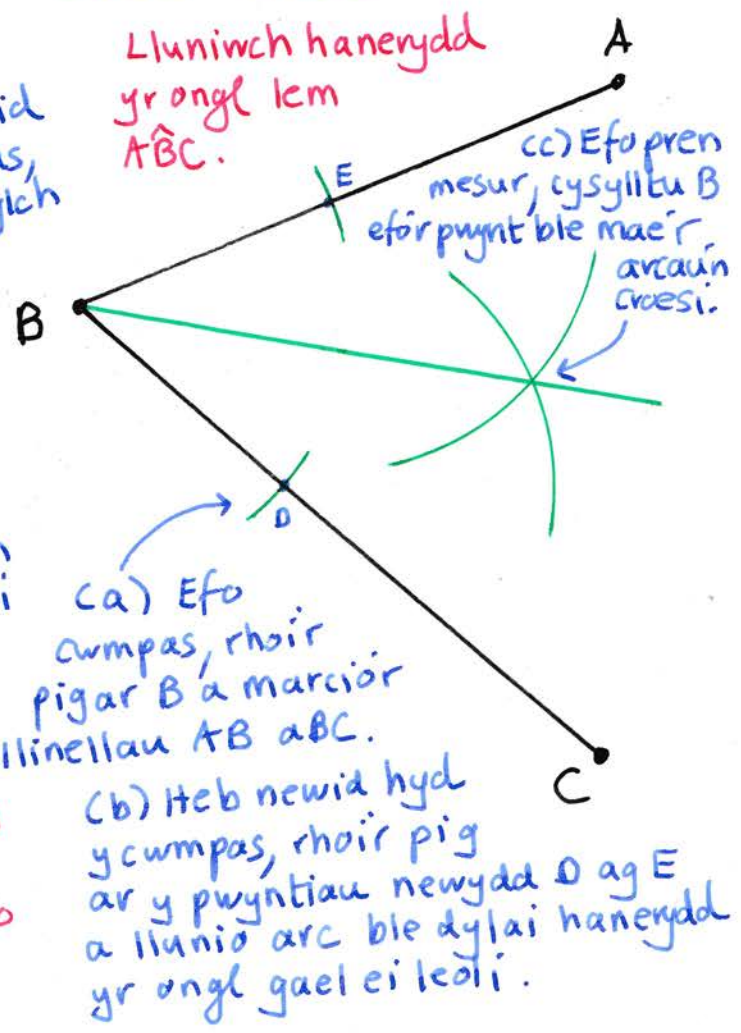 Lluniwch hanerydd
yr ongl lem
AB̂C.
A
(c) Efo pren
mesur, cysylltu B
efo'r pwynt ble mae'r
arcau'n
croesi.
E
B
D
(a) Efo
cwmpas, rhoi'r
pig ar B a marcio'r
llinellau AB a BC.
C
(b) Heb newid hyd
y cwmpas, rhoi'r pig
ar y pwyntiau newydd D ag E
a llunio arc ble dylai hanerydd
yr ongl gael ei leoli.